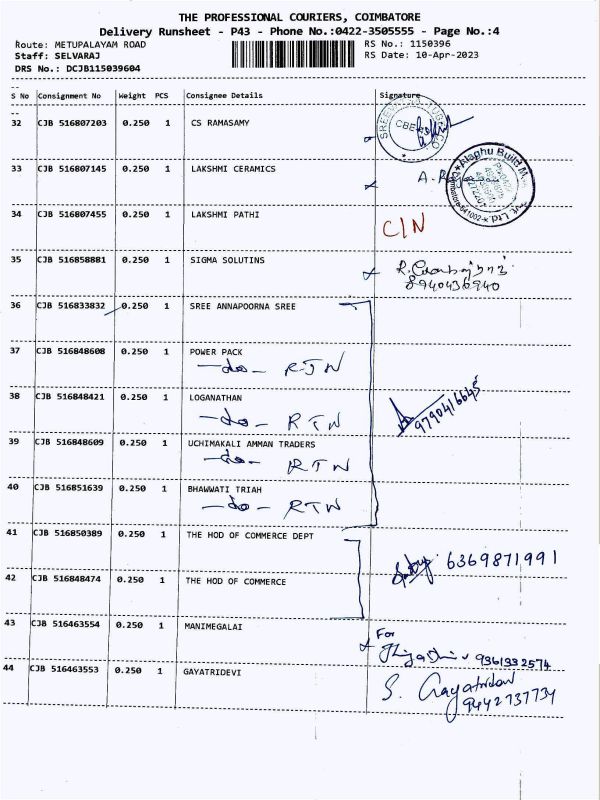 THE PROFESSIONAL COURIERS, COIMBATORE
Delivery Runsheet - P43 - Phone No.:0422-3505555 - Page No.:4
Route: METUPALAYAM ROAD RS No.: 1150396
Staff: SELVARAJ RS Date: 10-Apr-2023
DRS No.: DCJB115039604
S No Consignment No Weight PCS Consignee Details Signature
32 CJB 516807203 0.250 1 CS RAMASAMY
33 CJB 516807145 0.250 1 LAKSHMI CERAMICS
34 CJB 516807455 0.250 1 LAKSHMI PATHI C/N
35 CJB 516858881 0.250 1 SIGMA SOLUTINS
8940436940
36 CJB 516833832 0.250 1 SREE ANNAPOORNA SREE
37 CJB 516848608 0.250 1 POWER PACK
-do- RTN
38 CJB 516848421 0.250 1 LOGANATHAN 9790416645
-do- RTN
39 CJB 516848609 0.250 1 UCHIMAKALI AMMAN TRADERS
-do- RTN
40 CJB 516851639 0.250 1 BHAWWATI TRIAH
-do- RTN
41 CJB 516850389 0.250 1 THE HOD OF COMMERCE DEPT
6369871991
42 CJB 516848474 0.250 1 THE HOD OF COMMERCE
43 CJB 516463554 0.250 1 MANIMEGALAI For
9361332574
44 CJB 516463553 0.250 1 GAYATRIDEVI S. Gayatridevi
9442737734